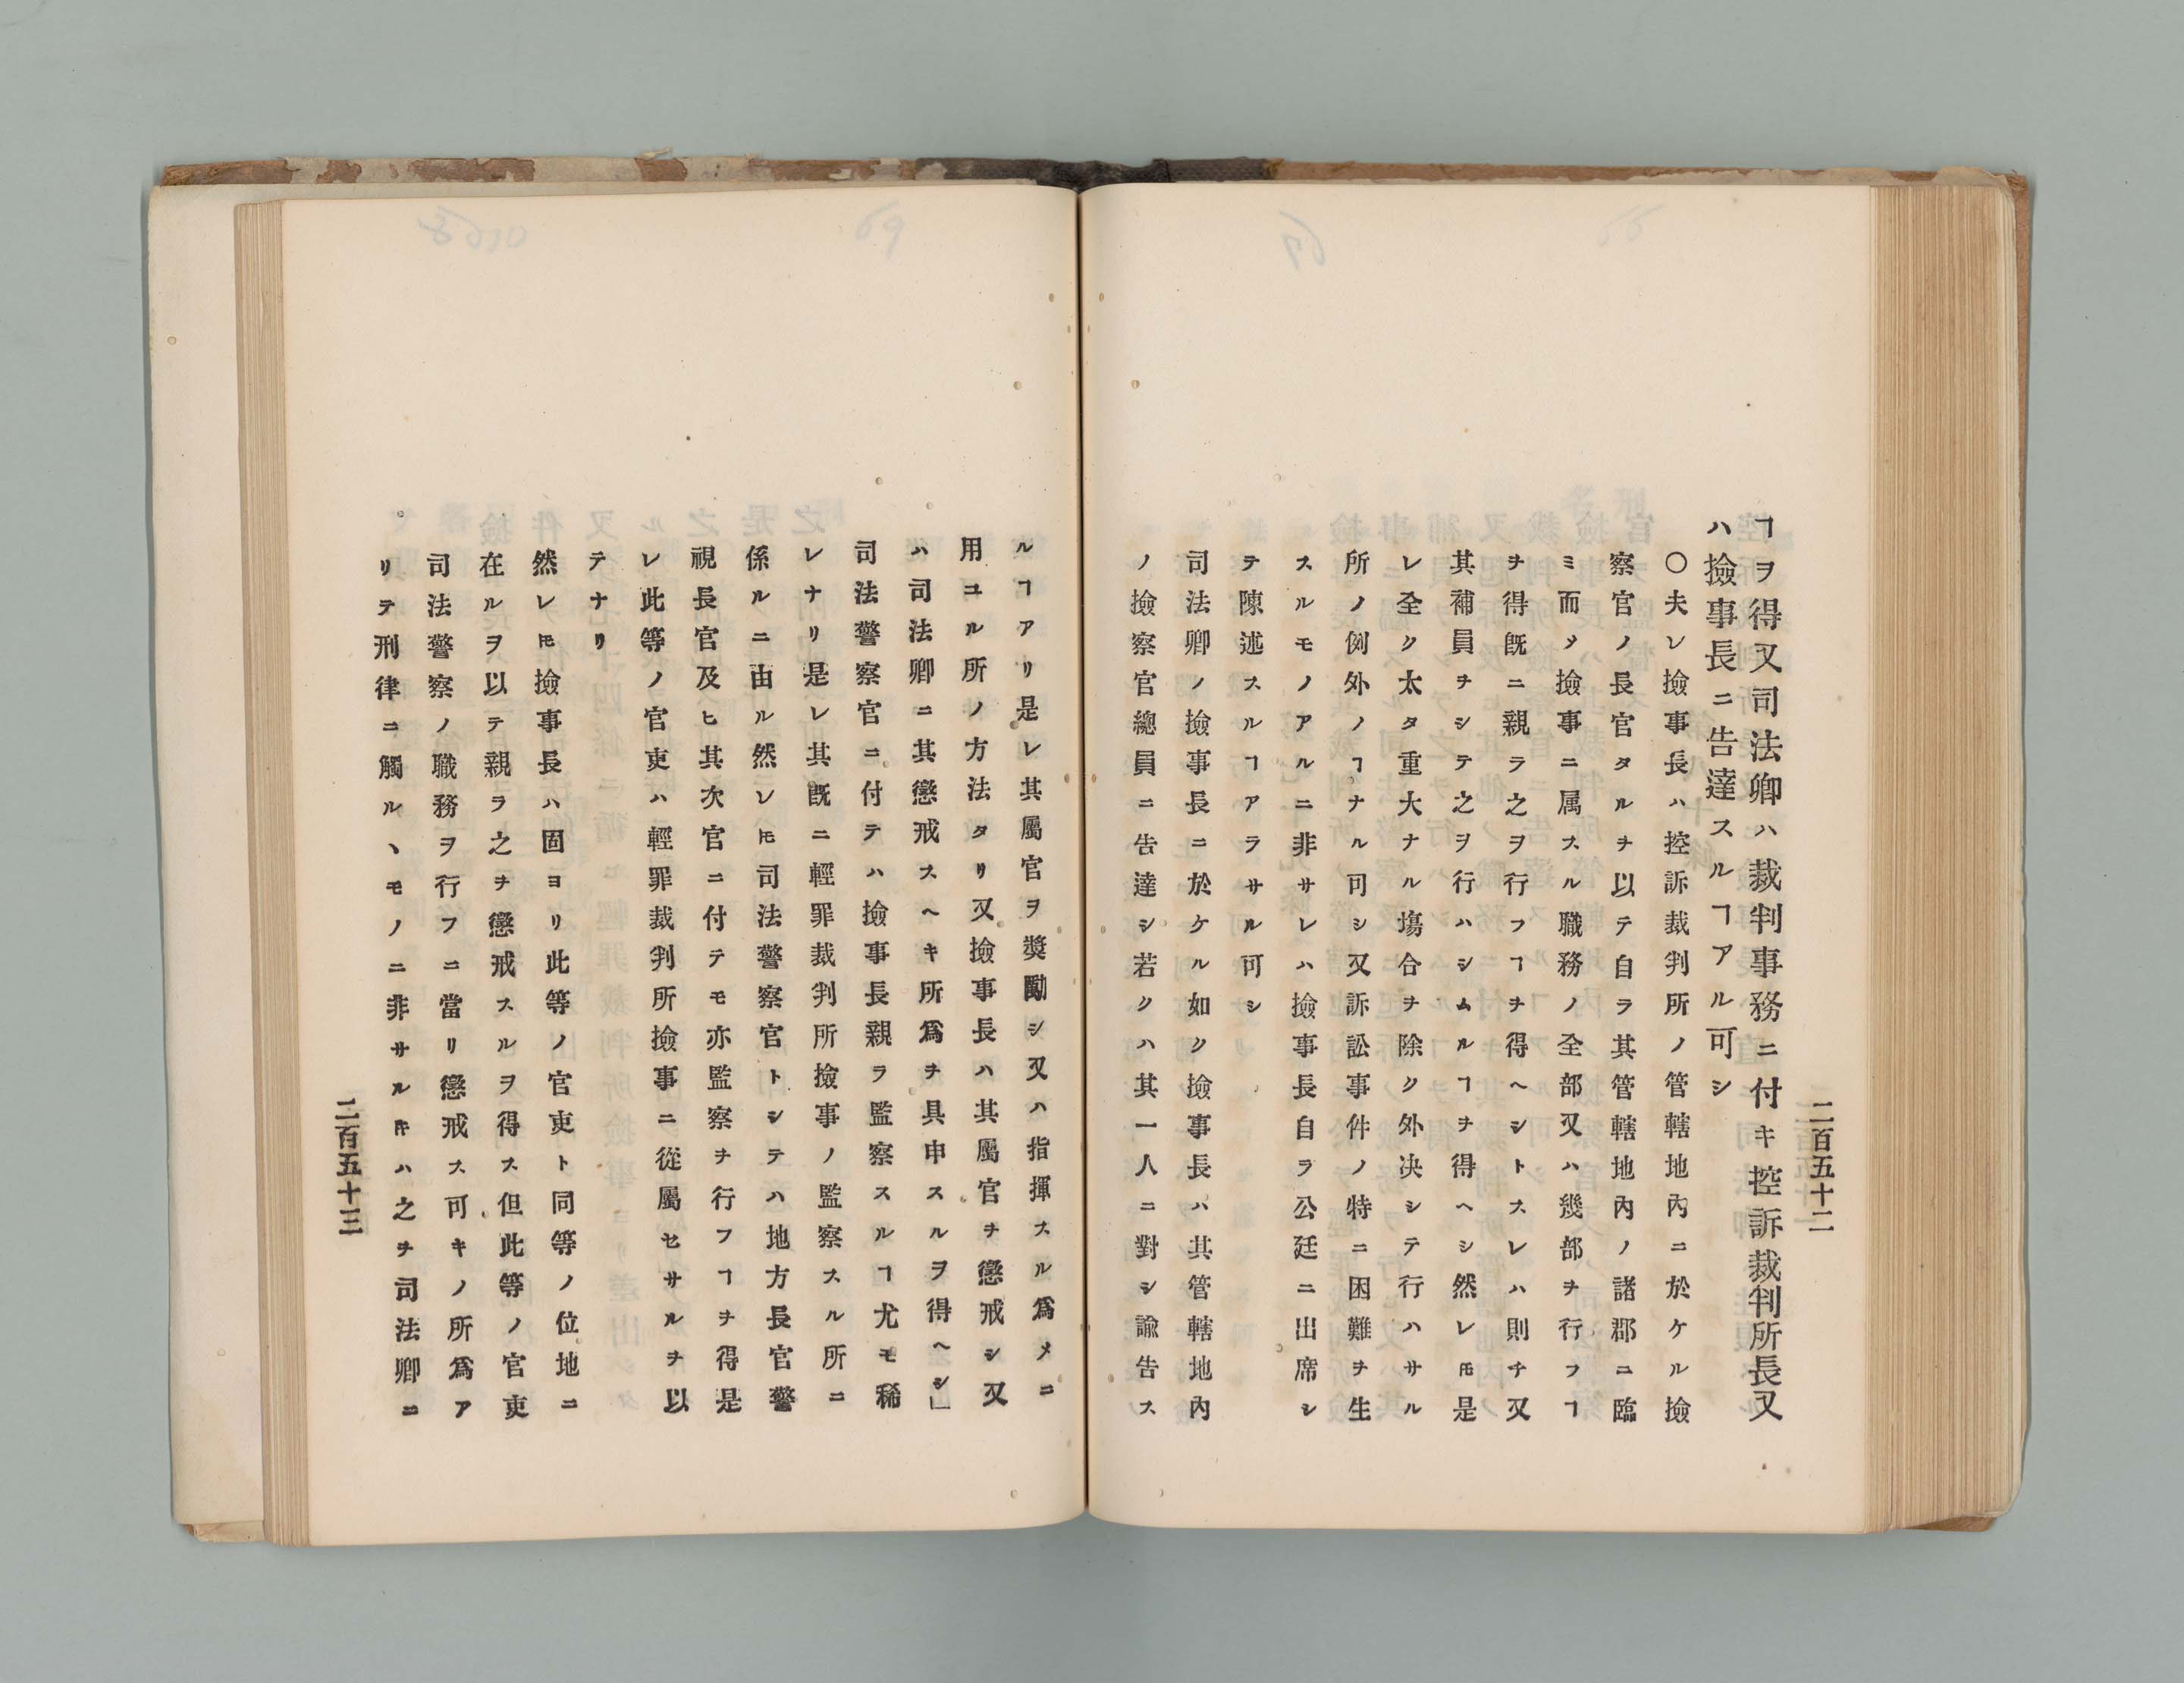 二百五十二
ヿヲ得又司法卿ハ裁判事務ニ付キ控訴裁判所長又
ハ撿事長ニ告達スルヿアル可シ
〇夫レ撿事長ハ控訴裁判所ノ管轄地內ニ於ケル撿
察官ノ長官タルヲ以テ自ラ其管轄地內ノ諸郡ニ臨
ミ而メ撿事ニ属スル職務ノ全部又ハ幾部ヲ行フヿ
ヲ得既ニ親ラ之ヲ行フヿヲ得ヘシトスレハ則チ又
其補員ヲシテ之ヲ行ハシムルヿヲ得ヘシ然レ𪜈是
レ全ク太タ重大ナル塲合ヲ除ク外決シテ行ハサル
所ノ例外ノヿナル可シ又訴訟事件ノ特ニ困難ヲ生
スルモノアルニ非サレハ撿事長自ラ公廷ニ出席シ
テ陳述スルヿアラサル可シ
司法卿ノ撿事長ニ於ケル如ク撿事長ハ其管轄地內
ノ撿察官總員ニ告達シ若クハ其一人ニ對シ諭告ス
ルヿアリ是レ其屬官ヲ奬勵シ又ハ指揮スル爲メニ
用ユル所ノ方法タリ又撿事長ハ其屬官ヲ懲戒シ又
ハ司法卿ニ其懲戒スヘキ所爲ヲ具申スルヲ得ヘシ」
司法警察官ニ付テハ撿事長親ラ監察スルヿ尤モ稀
レナリ是レ其既ニ輕罪裁判所撿事ノ監察スル所ニ
係ルニ由ル然レ𪜈司法警察官トシテハ地方長官警
視長官及ヒ其次官ニ付テモ亦監察ヲ行フヿヲ得是
レ此等ノ官吏ハ輕罪裁判所撿事ニ從屬セサルヲ以
テナリ
然レ𪜈撿事長ハ固ヨリ此等ノ官吏ト同等ノ位地ニ
在ルヲ以テ親ラ之ヲ懲戒スルヲ得ス但此等ノ官吏
司法警察ノ職務ヲ行フニ當リ懲戒ス可キノ所爲ア
リテ刑律ニ觸ルヽモノニ非サルキハ之ヲ司法卿ニ
二百五十三